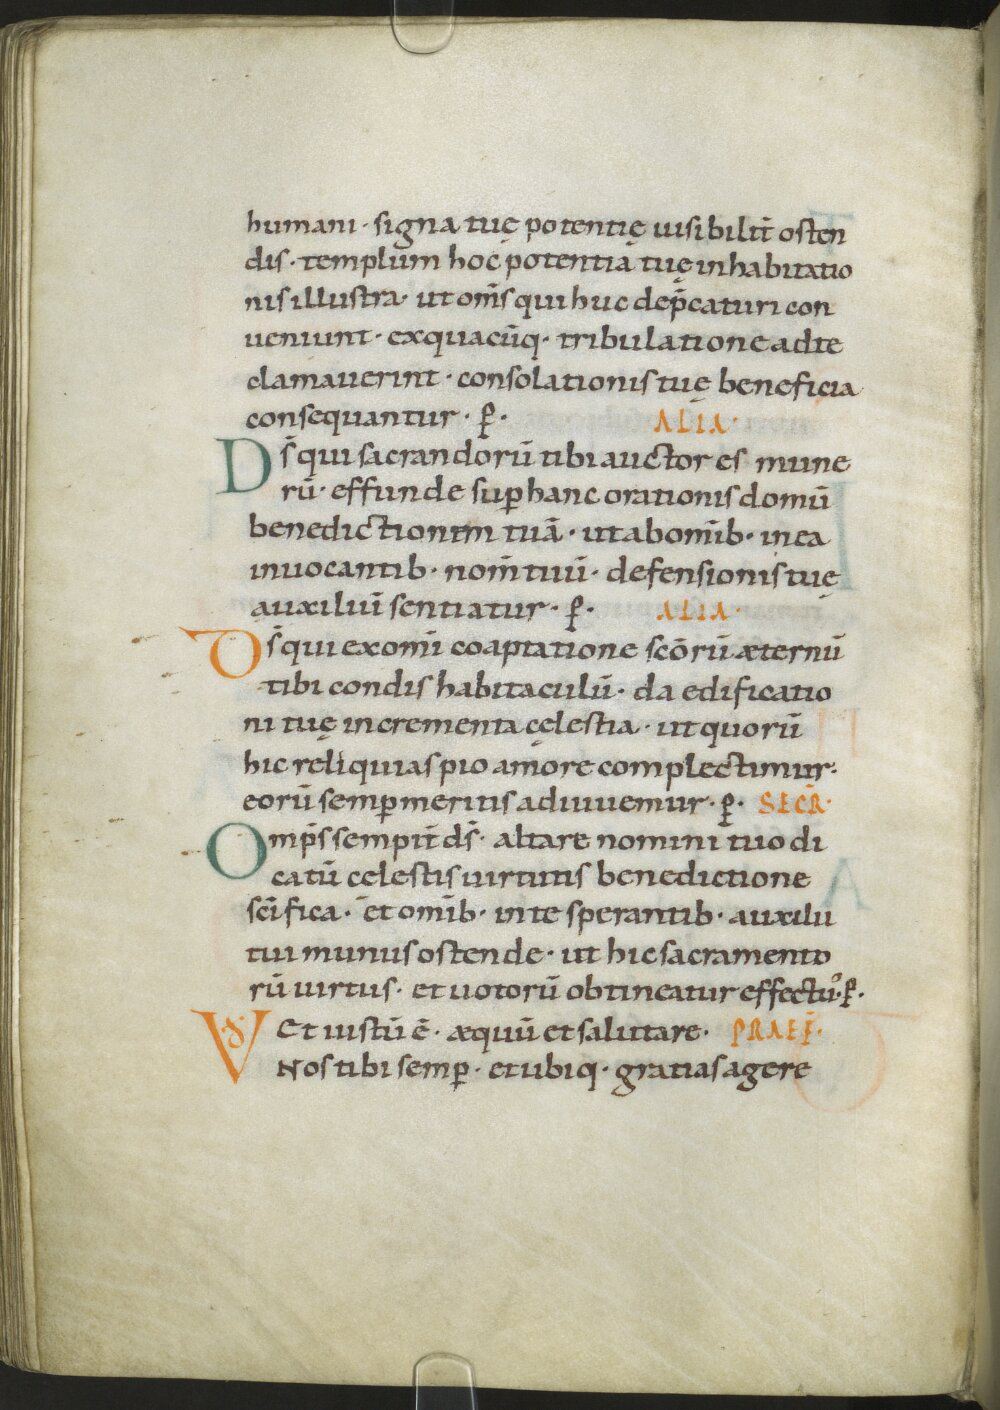 humani · signa tuę potentię uisibilit̄ osten
dis · templum hoc potentia tuę inhabitatio
nis illustra · ut om̄s qui huc dep̄caturi con
ueniunt · exquacūq · tribulatione adte
clamauerint · consolationis tuę beneficia
consequantur · ꝑ · ALIA ·
Ds̄ qui sacrandorū tibi auctor es mune
rū · effunde suꝑ hanc orationis domū
benedictionem tuā · ut abom̄ib · inea
inuocantib · nom̄ tuū · defensionis tuę
auxiliū sentiatur · ꝑ · ALIA ·
Ds̄ qui exom̄i coaptatione sc̄orū æternū
tibi condis habitaculū · da edificatio
ni tuę incrementa cęlestia · ut quorū
hic reliquias pio amore complectimur ·
eorū semꝑ meritis adiuuemur · ꝑ · SECR̄ ·
Omp̄s sempit̄ ds̄ · altare nomini tuo di
catū celestis uirtutis benedictione
sc̄ifica · et om̄ib · inte sperantib · auxilii
tui munus ostende · ut hic sacramento
rū uirtus · et uotorū obtineatur effectuꝰ · ꝑ ·
VD Et iustū ē · æquū et salutare · PRAEF̄ ·
Nos tibi semꝑ · et ubiq · gratias agere